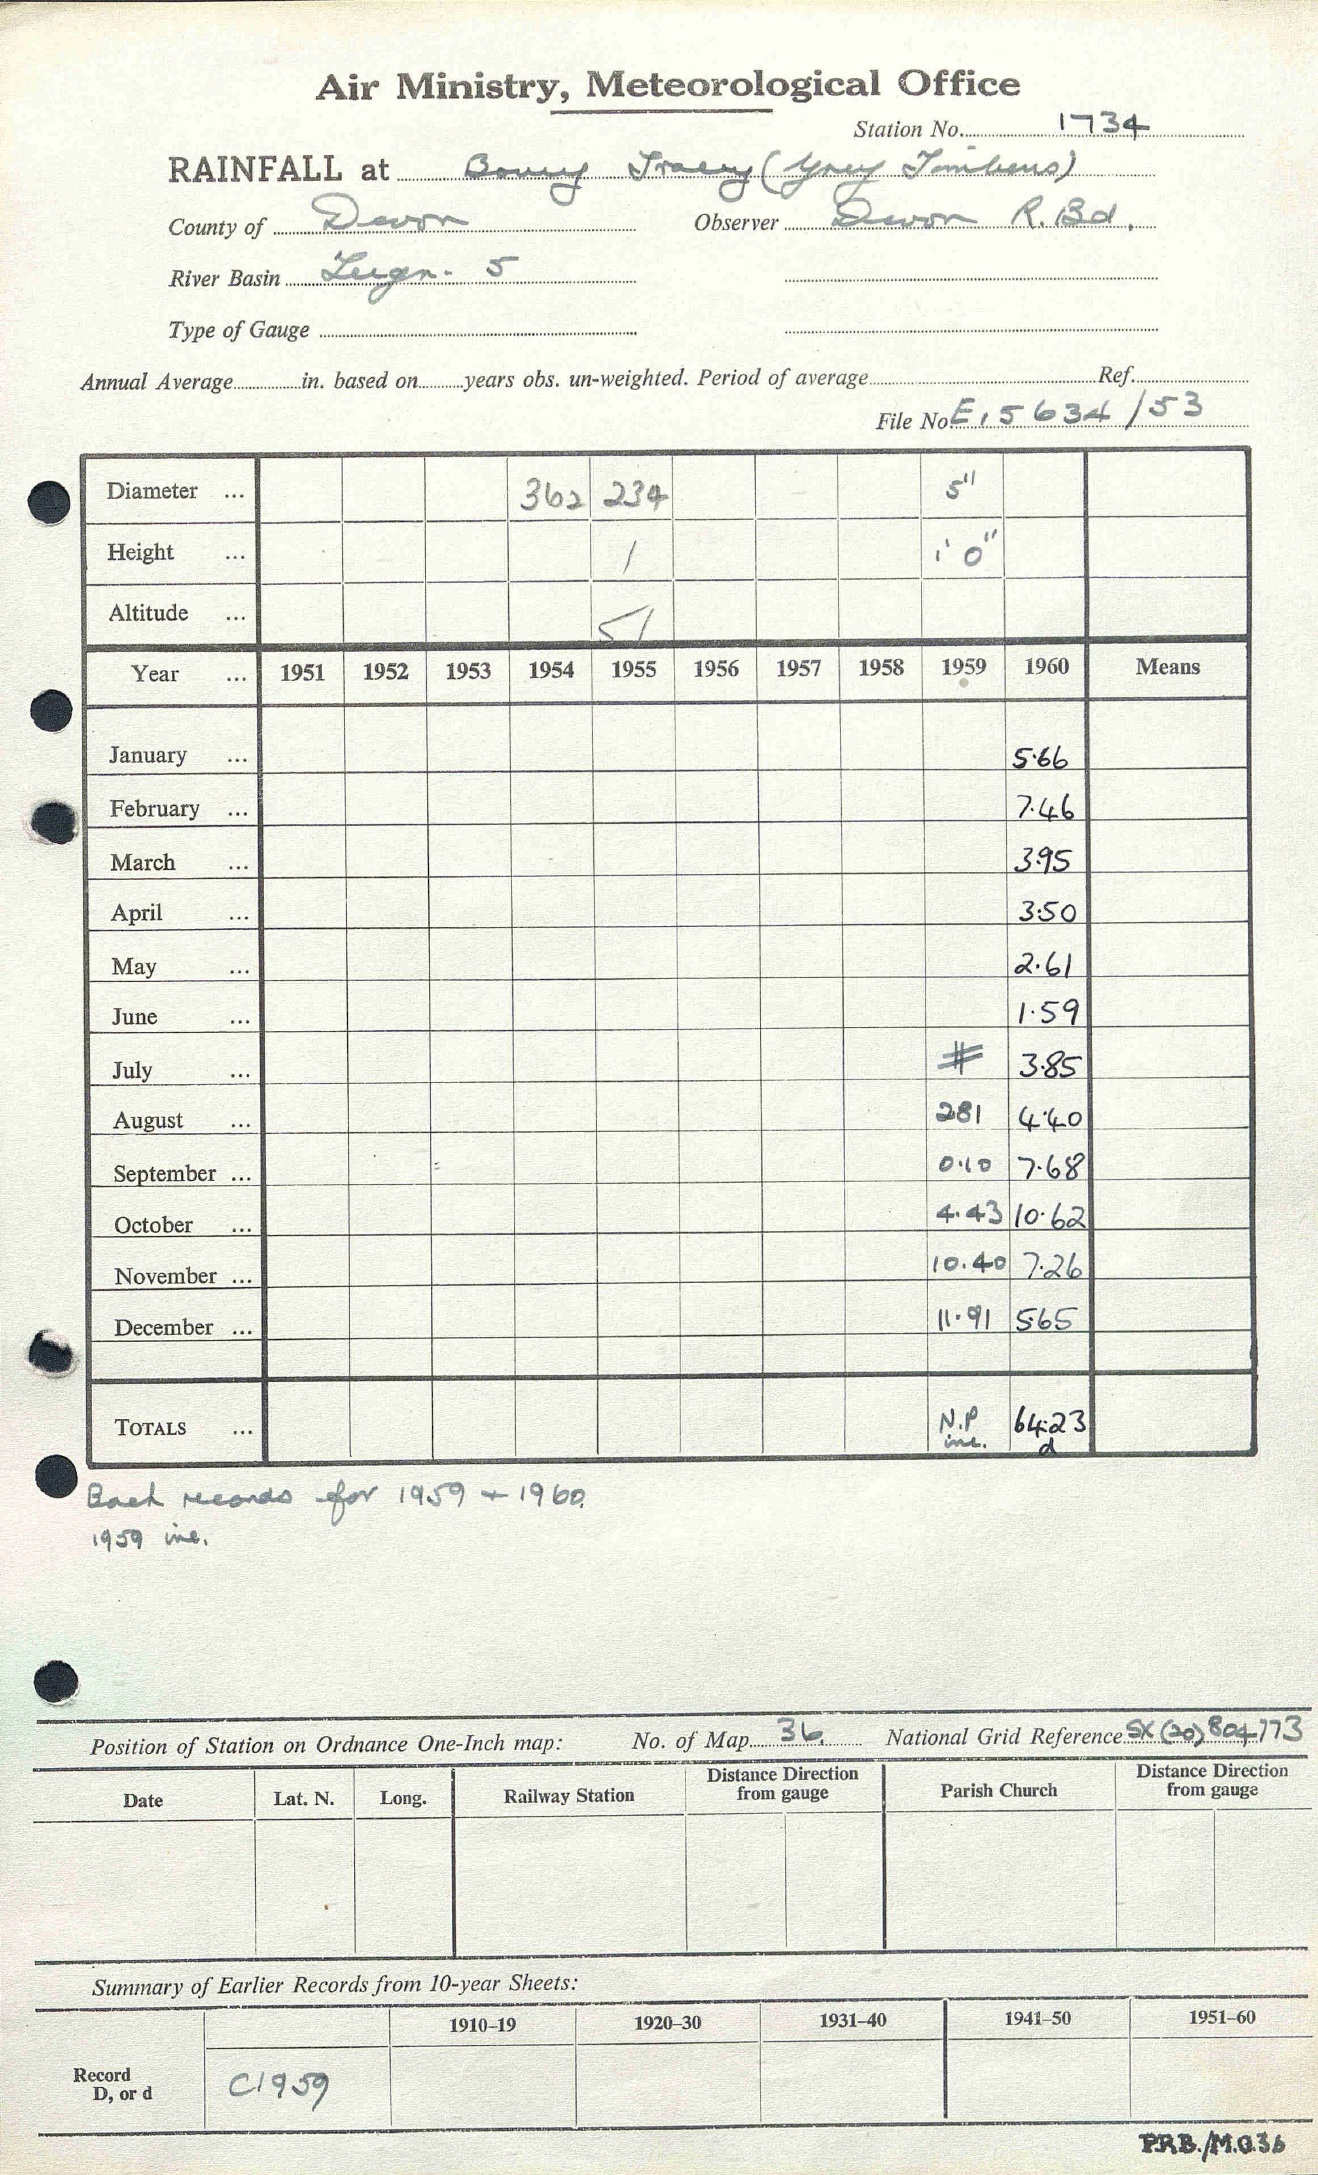 Air Ministry, Meteorological Office
Station No. 1734
RAINFALL at Bovey Tracey (Grey Timbers)
County of Devon Observer Devon R. Bd.
River Basin Teign. 5
Type of Gauge
Annual Average in. based on years obs. un-weighted. Period of average Ref.
File No E, 5634/53
Diameter ... 362 234 5"
Height ... 1 1' 0"
Altitude ... 51
Year ... 1951 1952 1953 1954 1955 1956 1957 1958 1959 1960 Means
January ... 5.66
February ... 7.46
March ... 3.95
April ... 3.50
May ... 2.61
June ... 1.59
July ... # 3.85
August ... 281 4.40
September ... 0.10 7.68
October ... 4.43 10.62
November ... 10.40 7.26
December ... 11.91 5.65
TOTALS ... N.P inc. 64.23 d
Back records for 1959 + 1960.
1959 inc.
Position of Station on Ordnance One-Inch map: No. of Map 36. National Grid Reference SX (20) 804773
Date Lat. N. Long. Railway Station Distance Direction from gauge Parish Church Distance Direction from gauge
Summary of Earlier Records from 10-year Sheets:
1910–19 1920–30 1931–40 1941–50 1951–60
Record
D, or d C1959
P.R.B./M.O.36